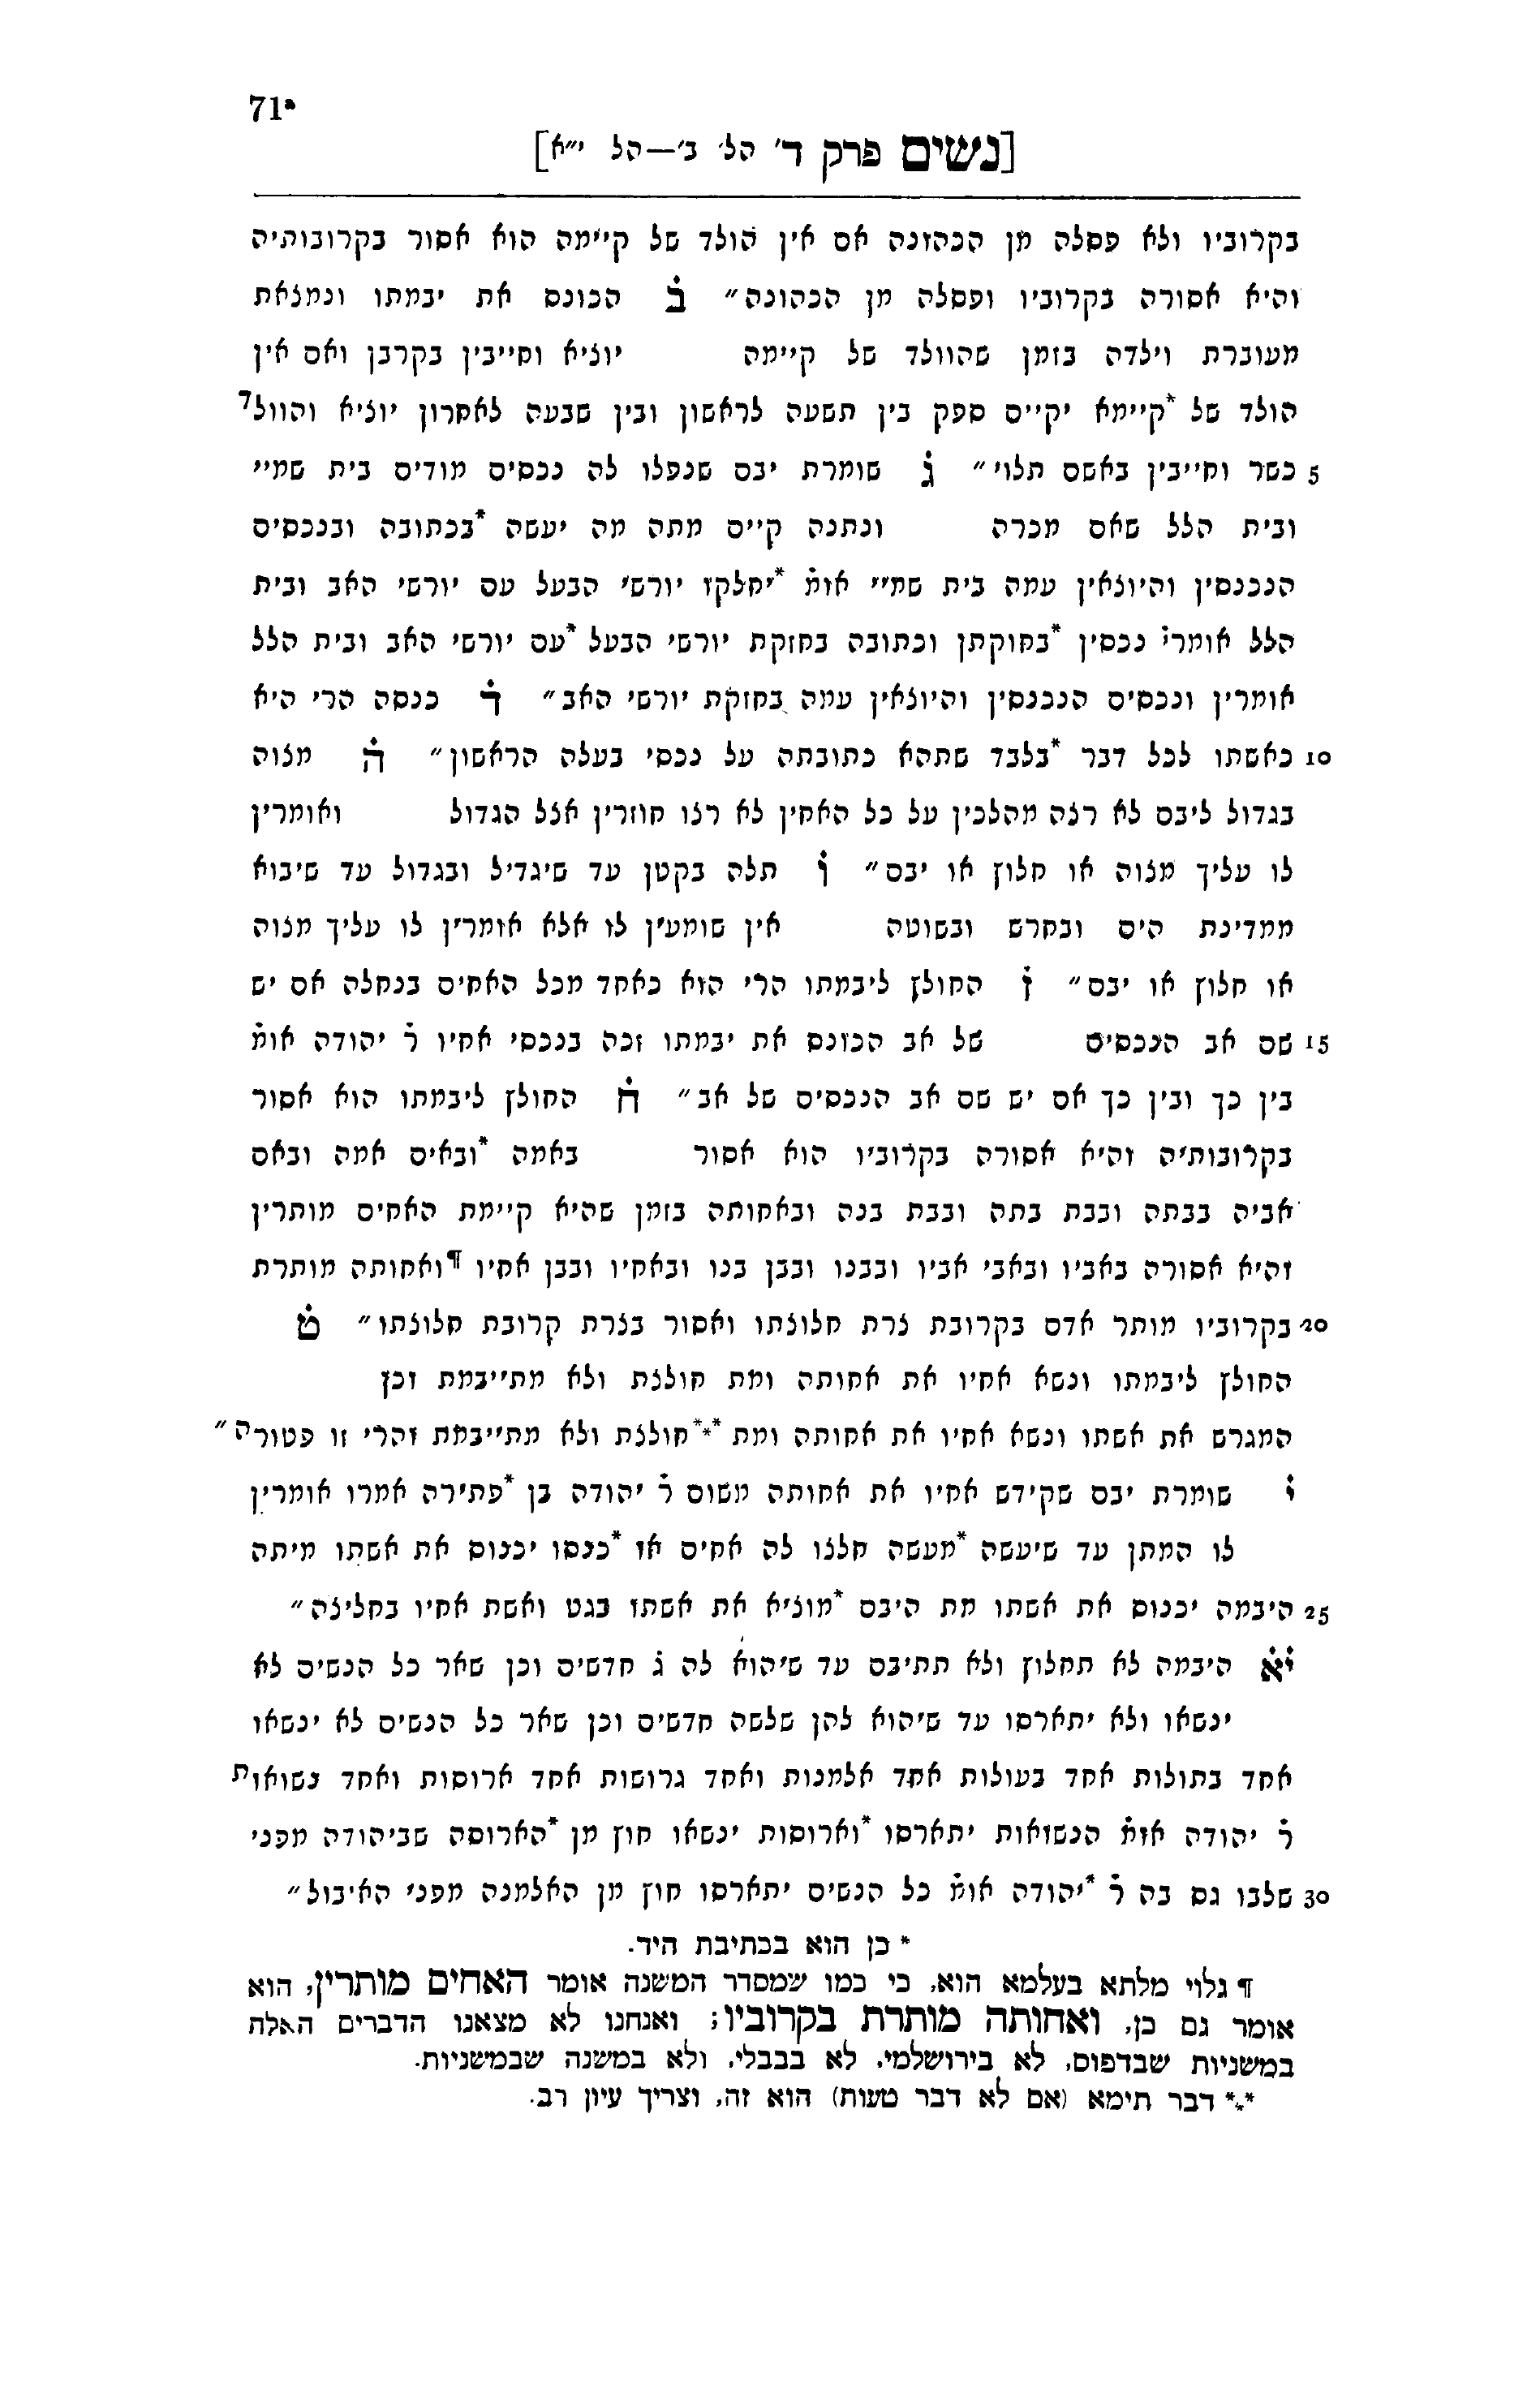 71ª
[נשים פרק ד' הל' ב'—הל י״א]
בקרוביו ולא פסלה מן הכהונה אם אין הולד של קיימה הוא אסור בקרובותיה
והיא אסורה בקרוביו ופסלה מן הכהונה״ ב̇ הכונס את יבמתו ונמצאת
מעוברת וילדה בזמן שהוולד של קיימה יוציא וחייבין בקרבן ואם אין
הולד של *קיימא יקיים ספק בין תשעה לראשון ובין שבעה לאחרון יוציא והוולד
5 כשר וחייבין באשם תלוי״ ג̇ שומרת יבם שנפלו לה נכסים מודים בית שמיי
ובית הלל שאם מכרה ונתנה קיים מתה מה יעשה *בכתובה ובנכסים
הנכנסין והיוצאין עמה בית שמיי אומ̇ *יחלקו יורשי הבעל עם יורשי האב ובית
הלל אומרי̇ נכסין *בחוקתן וכתובה בחזקת יורשי הבעל *עם יורשי האב ובית הלל
אומרין ונכסים הנכנסין והיוצאין עמה בחזקת יורשי האב״ ד̇ כנסה הרי היא
10 כאשתו לכל דבר *בלבד שתהא כתובתה על נכסי בעלה הראשון״ ה̇ מצוה
בגדול ליבם לא רצה מהלכין על כל האחין לא רצו חוזרין אצל הגדול ואומרין
לו עליך מצוה או חלוץ או יבם״ ו̇ תלה בקטן עד שיגדיל ובגדול עד שיבוא
ממדינת הים ובחרש ובשוטה אין שומעין לו אלא אומרין לו עליך מצוה
או חלוץ או יבם״ ז̇ החולץ ליבמתו הרי הוא כאחד מכל האחים בנחלה אם יש
15 שם אב הנכסים של אב הכונס את יבמתו זכה בנכסי אחיו ר̇ יהודה אומ̇
בין כך ובין כך אם יש שם אב הנכסים של אב״ ח̇ החולץ ליבמתו הוא אסור
בקרובותיה והיא אסורה בקרוביו הוא אסור באמה *ובאים אמה ובאם
אביה בבתה ובבת בתה ובבת בנה ובאחותה בזמן שהיא קיימת האחים מותרין
והיא אסורה באביו ובאבי אביו ובבנו ובבן בנו ובאחיו ובבן אחיו ¶ואחותה מותרת
20 בקרוביו מותר אדם בקרובת צרת חלוצתו ואסור בצרת קרובת חלוצתו״ ט̇
החולץ ליבמתו ונשא אחיו את אחותה ומת חולצת ולא מתייבמת וכן
המגרש את אשתו ונשא אחיו את אחותה ומת ***חולצת ולא מתייבמת והרי זו פטורה״
י̇ שומרת יבם שקידש אחיו את אחותה משום ר̇ יהודה בן *פתירה אמרו אומרין
לו המתן עד שיעשה *מעשה חלצו לה אחים או *כנסו יכנוס את אשתו מיתה
25 היבמה יכנוס את אשתו מת היבם *מוציא את אשתו בגט ואשת אחיו בחליצה״
י̇א̇ היבמה לא תחלוץ ולא תתיבם עד שיהוא לה ג̇ חדשים וכן שאר כל הנשים לא
ינשאו ולא יתארסו עד שיהוא להן שלשה חדשים וכן שאר כל הנשים לא ינשאו
אחד בתולות אחד בעולות אחד אלמנות ואחד גרושות אחד ארוסות ואחד נשואות
ר̇ יהודה אומ̇ הנשואות יתארסו *וארוסות ינשאו חוץ מן *הארוסה שביהודה מפני
30 שלבו גס בה ר̇ *יהודה אומ̇ כל הנשים יתארסו חוץ מן האלמנה מפני האיבול״
* כן הוא בכתיבת היד.
¶ גלוי מלתא בעלמא הוא, כי כמו שמסדר המשנה אומר האחים מותרין, הוא
אומר גם כן, ואחותה מותרת בקרוביו; ואנחנו לא מצאנו הדברים האלת
במשניות שבדפוס, לא בירושלמי, לא בבבלי, ולא במשנה שבמשניות.
*** דבר תימא (אם לא דבר טעות) הוא זה, וצריך עיון רב.